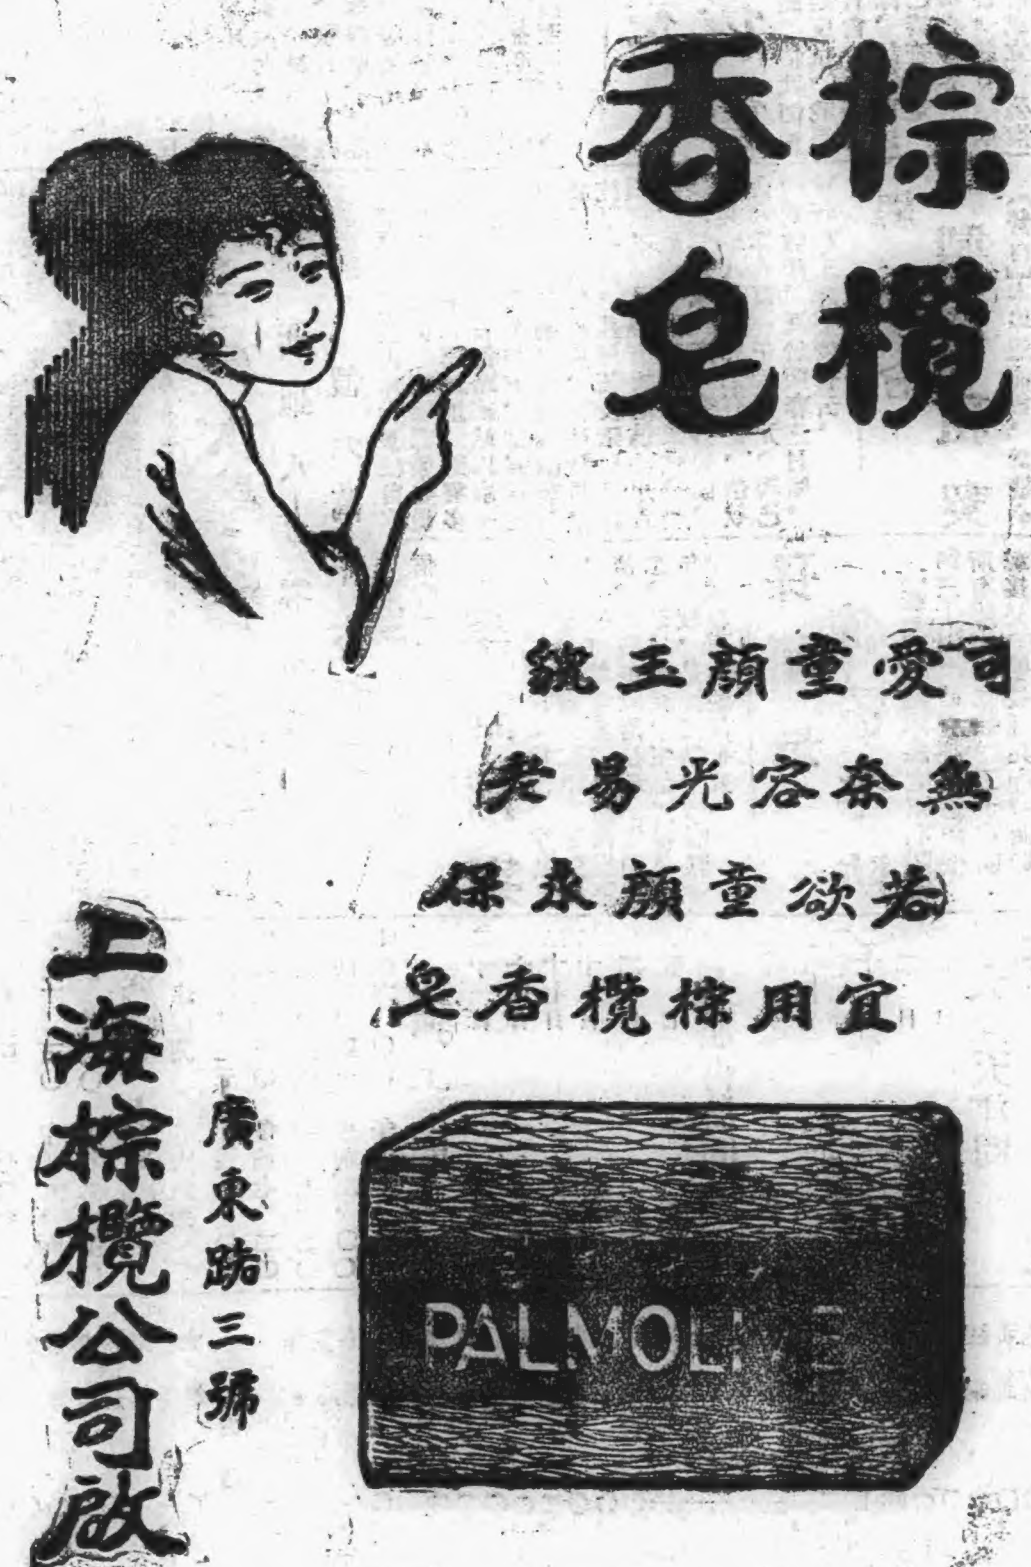 棕欖
香皂
可愛童顔玉貌
無奈容光易老
若欲童顔永保
宜用棕欖香皂
PALMOLIVE
廣東路三號
上海棕欖公司啟